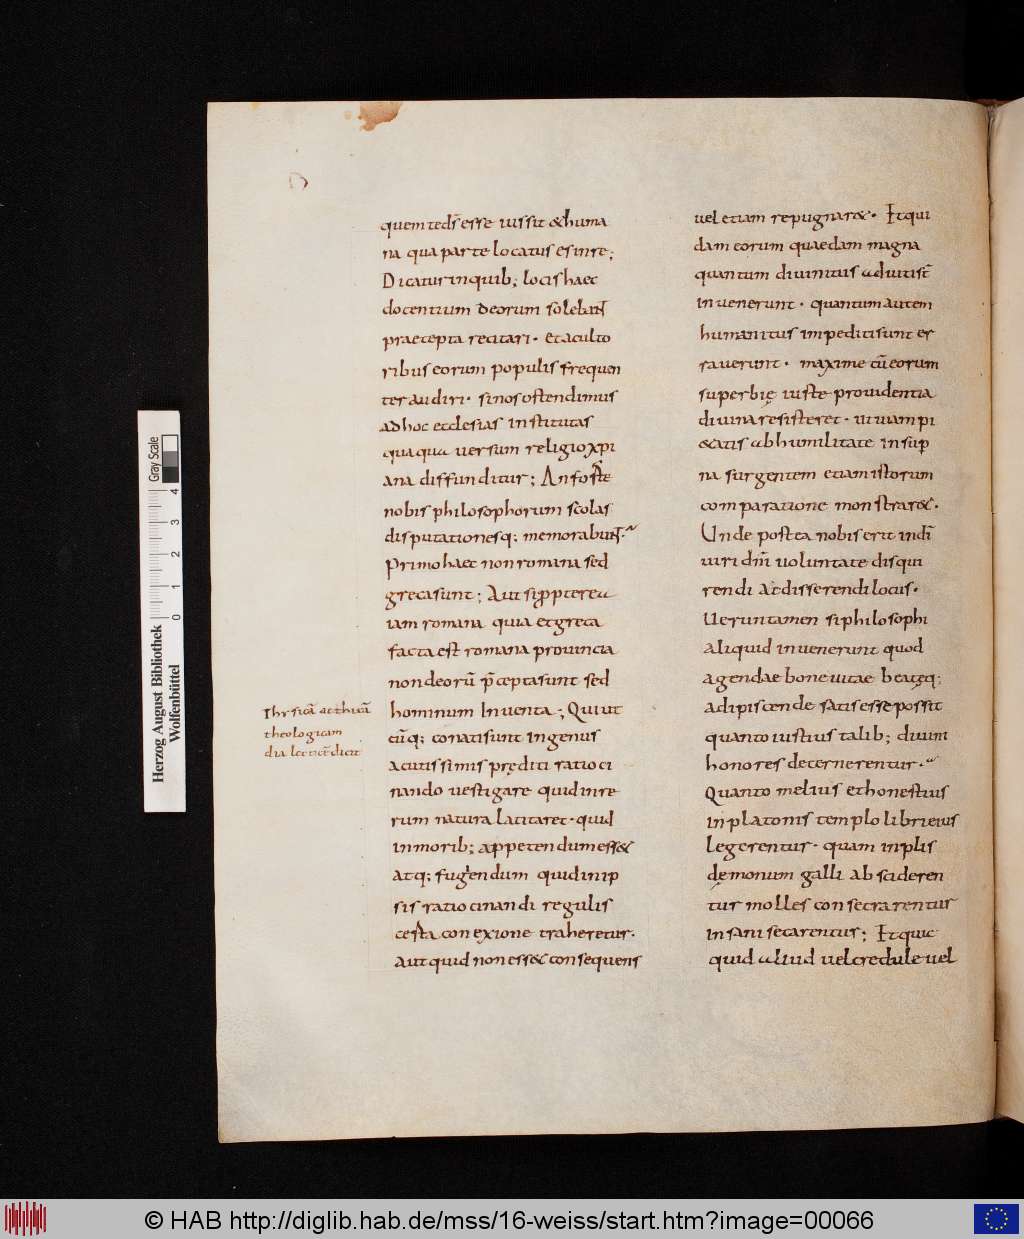 quem te ds̄ esse iussit & huma
na qua parte locatus es in re;
Dicatur in quib; locis haec
docentium deorum soleban̄t
praecepta recitari · et a culto
ribus eorum populis frequen
ter audiri · sic nos ostendimus
ad hoc ecclesias institutas
quaqua versum religio xpi
ana diffunditur; An forte
nobis philosophorum scolas
disputationesq; memorabun̄t ·
primo haec non romana sed
greca sunt; Aut si ꝓpterea
iam romana quia et greca
facta est romana provincia
non deorū p̄cepta sunt sed
hominum inventa; Qui ut
cūq; conati sunt ingenus
acutissimis pręditi ratioci
nando vestigare quid in re
rum natura latitaret · quid
in morib; appetendum ess&
atq; fugiendum quid in ip
sis ratiocinandi regulis
certa conexione traheretur ·
aut quid non ess& consequens
Thysicā at thicā
theologicam
dialecticē dicit
vel etiam repugnar& · Et qui
dam eorum quaedam magna
quantum divinitus adiuti st̄
invenerunt · quantum autem
humanitus impediti sunt er
raverunt · maxime cū eorum
superbię iuste providentia
divina resisteret · ut viam pi
&atis ab humilitate in sup
na surgentem etiam istorum
comparatione monstrar& ·
Unde postea nobis erit indī
viri dm̄ voluntate disqui
rendi ac disserendi locus ·
Veruntamen si philosophi
aliquid invenerunt quod
agendae bone vitae beatęq;
adipiscende satis esse possit
quanto iustius talib; divini
honores decernerentur ·
Quanto melius et honestius
in platonis templo libri eius
legerentur · quam in plis
dęmonum galli abscideren
tur molles consecrarentur
insani secarentur; Et quic
quid aliud vel credule vel
Herzog August Bibliothek
Wolfenbüttel
Gray Scale
0 1 2 3 4
© HAB http://diglib.hab.de/mss/16-weiss/start.htm?image=00066